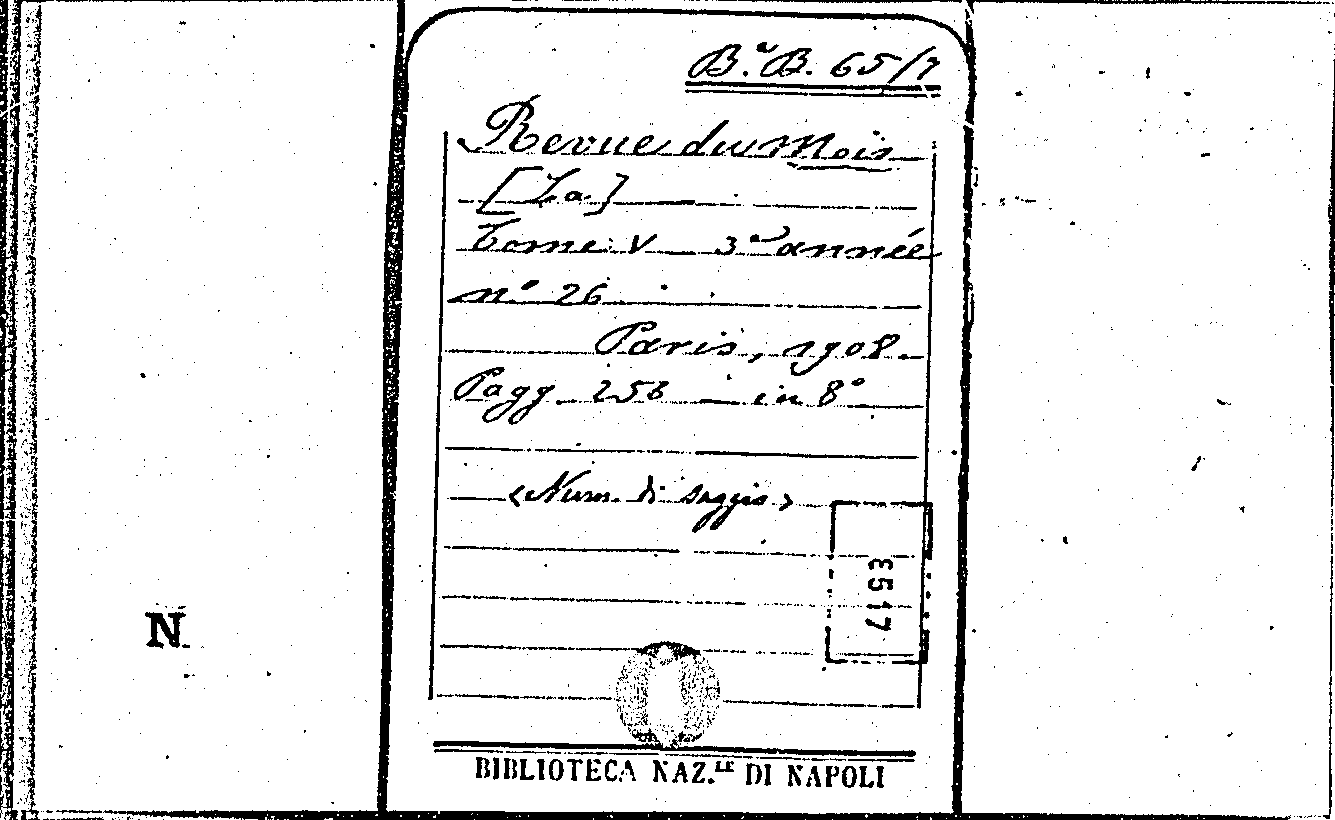 Bª B. 65/7
Revue du Mois
[La]
Tome V 3e année
nº 26
Paris, 1908.
Pagg. 256 in 8º
<Num. di saggio>
E517
N.
BIBLIOTECA NAZ.LE DI NAPOLI